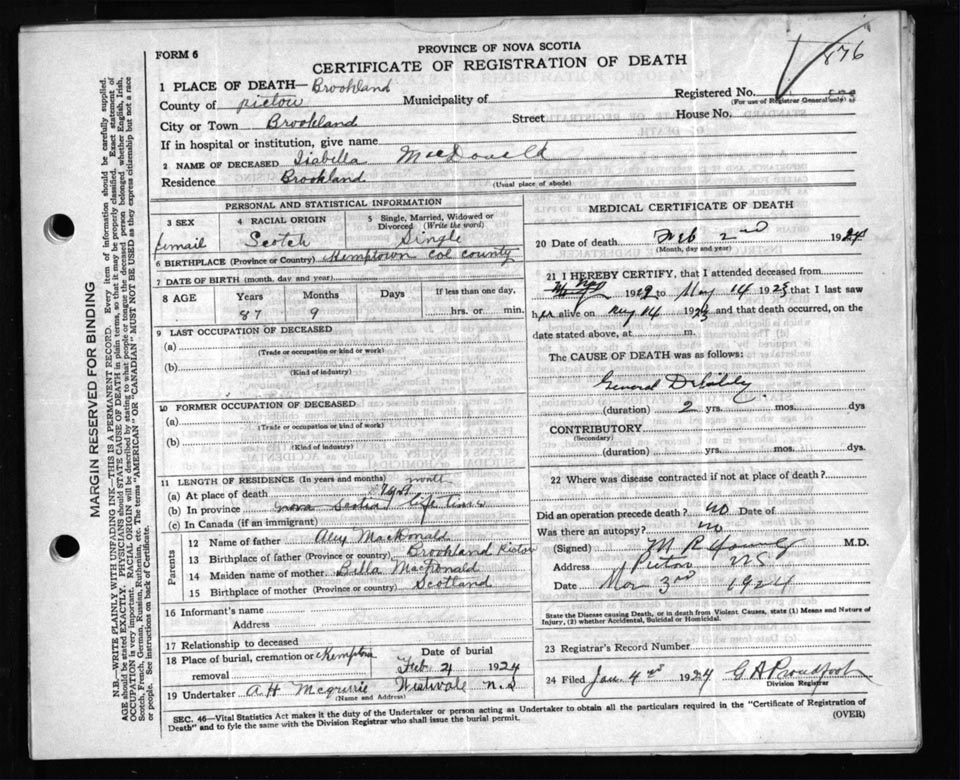 FORM 6
PROVINCE OF NOVA SCOTIA
CERTIFICATE OF REGISTRATION OF DEATH
876
1 PLACE OF DEATH— Brookland
Registered No.
(For use of Registrar General only)
County of Pictou Municipality of
City or Town Brookland Street House No.
If in hospital or institution, give name
2 NAME OF DECEASED Isabella MacDonald
Residence Brookland
(Usual place of abode)
PERSONAL AND STATISTICAL INFORMATION
3 SEX 4 RACIAL ORIGIN 5 Single, Married, Widowed or Divorced (Write the word)
femail Scotch Single
6 BIRTHPLACE (Province or Country) Kemptown Col county
7 DATE OF BIRTH (month, day and year)
8 AGE Years Months Days If less than one day,
87 9 hrs. or min.
9 LAST OCCUPATION OF DECEASED
(a)
(Trade or occupation or kind or work)
(b)
(Kind of industry)
10 FORMER OCCUPATION OF DECEASED
(a)
(Trade or occupation or kind of work)
(b)
(Kind of industry)
11 LENGTH OF RESIDENCE (In years and months)
(a) At place of death
(b) In province Nova Scotia life time
(c) In Canada (if an immigrant)
Parents
12 Name of father Alex MacDonald
13 Birthplace of father (Province or Country) Brookland Pictou
14 Maiden name of mother Bella MacDonald
15 Birthplace of mother (Province or Country) Scotland
16 Informant's name
Address
17 Relationship to deceased
18 Place of burial, cremation or removal Kemptown Date of burial
Feb 4 1924
19 Undertaker A. H. Westvale N.S
(Name and Address)
MEDICAL CERTIFICATE OF DEATH
20 Date of death Feb 2nd 1924
(Month, day and year)
21 I HEREBY CERTIFY, that I attended deceased from
1919 to May 14 1923 that I last saw
her alive on May 14 1923 and that death occurred, on the
date stated above, at m.
The CAUSE OF DEATH was as follows:
General Debility
(duration) 2 yrs. mos. dys
CONTRIBUTORY
(Secondary)
(duration) yrs. mos. dys
22 Where was disease contracted if not at place of death?
Did an operation precede death? NO Date of
Was there an autopsy? NO
(Signed) M R Young M.D.
Address Pictou NS
Date Mar 3rd 1924
State the Disease causing Death, or in death from Violent Causes, state (1) Means and Nature of Injury, (2) whether Accidental, Suicidal or Homicidal.
23 Registrar's Record Number
24 Filed Jan. 4 1924 G A Proudfoot
Division Registrar
SEC. 46—Vital Statistics Act makes it the duty of the Undertaker or person acting as Undertaker to obtain all the particulars required in the "Certificate of Registration of
Death" and to fyle the same with the Division Registrar who shall issue the burial permit.
(OVER)
MARGIN RESERVED FOR BINDING
N.B.—WRITE PLAINLY WITH UNFADING INK—THIS IS A PERMANENT RECORD. Every item of information should be carefully supplied.
AGE should be stated EXACTLY. PHYSICIANS should STATE CAUSE OF DEATH in plain terms, so that it may be properly classified. Exact statement of
OCCUPATION is very important. RACIAL ORIGIN will be described by stating to what people or tongue the deceased person belonged whether English, Irish,
Scotch, French, German, Russian, Ruthenian, etc. The terms "AMERICAN" OR "CANADIAN" MUST NOT BE USED as they express citizenship but not a race
or people. See instructions on back of Certificate.